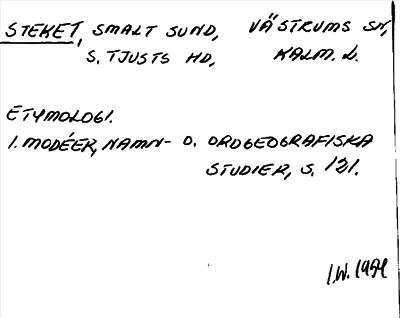 STEKET, SMALT SUND, VÄSTRUMS SN,
S. TJUSTS HD, KALM. L.
ETYMOLOGI.
I. MODÉER, NAMN- O. ORDGEOGRAFISKA
STUDIER, S. 121.
I.W. 1954